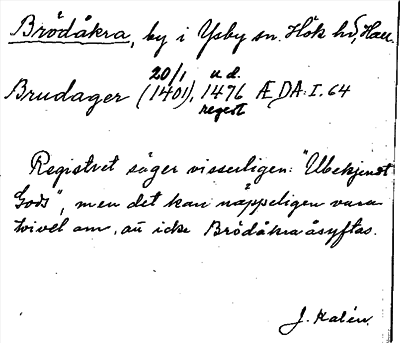 Brödåkra, by i Ysby sn. Hök hd, Hall.
20/1 u.d.
Brudager (1401), 1476 ÆDA: I. 64
regest
Registret säger visserligen: "Ubekjendt
Gods", men det kan näppeligen vara
tvivel om, att icke Brödåkra åsyftas.
J. Kalén.